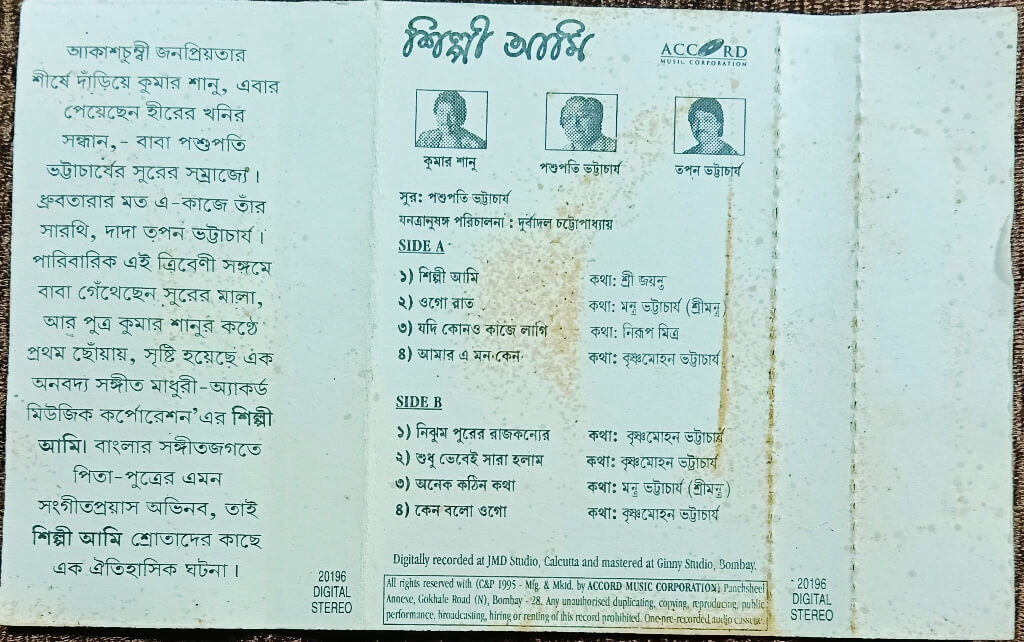 আকাশচুম্বী জনপ্রিয়তার
শীর্ষে দাঁড়িয়ে কুমার শানু, এবার
পেয়েছেন হীরের খনির
সন্ধান,- বাবা পশুপতি
ভট্টাচার্যের সুরের সম্রাজ্যে।
ধ্রুবতারার মত এ-কাজে তাঁর
সারথি, দাদা তপন ভট্টাচার্য।
পারিবারিক এই ত্রিবেণী সঙ্গমে
বাবা গেঁথেছেন সুরের মালা,
আর পুত্র কুমার শানুর কণ্ঠে
প্রথম ছোঁয়ায়, সৃষ্টি হয়েছে এক
অনবদ্য সঙ্গীত মাধুরী-অ্যাকর্ড
মিউজিক কর্পোরেশন'এর শিল্পী
আমি। বাংলার সঙ্গীতজগতে
পিতা-পুত্রের এমন
সংগীতপ্রয়াস অভিনব, তাই
শিল্পী আমি শ্রোতাদের কাছে
এক ঐতিহাসিক ঘটনা।
20196
DIGITAL
STEREO
শিল্পী আমি
ACCORD
MUSIC CORPORATION
কুমার শানু
পশুপতি ভট্টাচার্য
তপন ভট্টাচার্য
সুর: পশুপতি ভট্টাচার্য
যনত্রানুষঙ্গ পরিচালনা : দুর্বাদল চট্টোপাধ্যায়
SIDE A
১) শিল্পী আমি কথা: শ্রী জয়ন্ত
২) ওগো রাত কথা: মনু ভট্টাচার্য (শ্রীমনু)
৩) যদি কোনও কাজে লাগি কথা: নিরূপ মিত্র
৪) আমার এ মন কেন কথা: কৃষ্ণমোহন ভট্টাচার্য
SIDE B
১) নিঝুম পুরের রাজকন্যের কথা: কৃষ্ণমোহন ভট্টাচার্য
২) শুধু ভেবেই সারা হলাম কথা: কৃষ্ণমোহন ভট্টাচার্য
৩) অনেক কঠিন কথা কথা: মনু ভট্টাচার্য (শ্রীমনু)
৪) কেন বলো ওগো কথা: কৃষ্ণমোহন ভট্টাচার্য
Digitally recorded at JMD Studio, Calcutta and mastered at Ginny Studio, Bombay.
All rights reserved with (C&P 1995 - Mfg. & Mktd. by ACCORD MUSIC CORPORATION) Panchsheel
Annexe, Gokhale Road (N), Bombay - 28. Any unauthorised duplicating, copying, reproducing, public
performance, broadcasting, hiring or renting of this record prohibited. One pre-recorded audio cassette.
20196
DIGITAL
STEREO